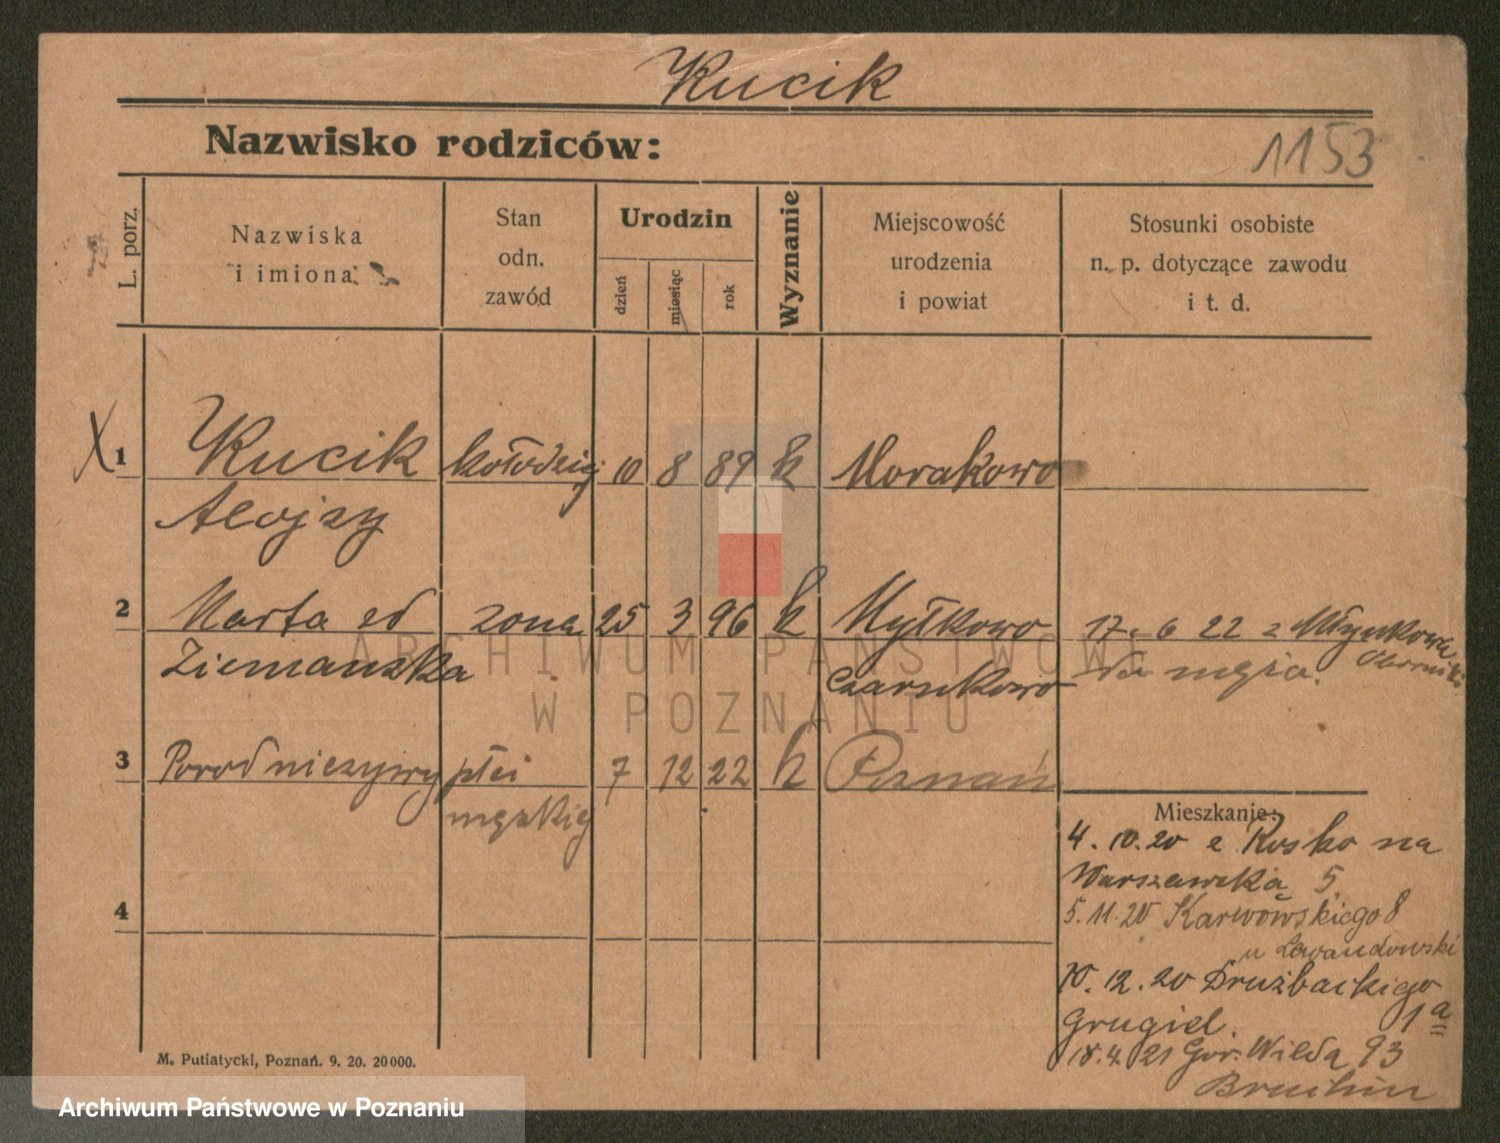 Kucik
Nazwisko rodziców:
1153
L. porz.
Nazwiska
i imiona:
Stan
odn.
zawód
Urodzin
dzień
miesiąc
rok
Wyznanie
Miejscowość
urodzenia
i powiat
Stosunki osobiste
n. p. dotyczące zawodu
i t. d.
X 1 Kucik kołodziej 10 8 89 k Morakowo
Alojzy
2 Marta zd żona 25 3 96 k Myłkowo 17. 6 22 z Młynkowa
Ziemanska Czarnkowo Oborniki
do męża.
3 Porod nieżywy płci 7 12 22 k Poznań
męzkiej
Mieszkanie:
4. 10. 20 z Rosko na
Warszawską 5
4
5. 11. 20 Karwowskiego 8
u Lewandowski
10. 12. 20 Drużbackiego
1a
18. 4 21 Gór. Wilda 93
M. Putiatycki, Poznań. 9. 20. 20000.
ARCHIWUM PAŃSTWOWE
W POZNANIU
Archiwum Państwowe w Poznaniu